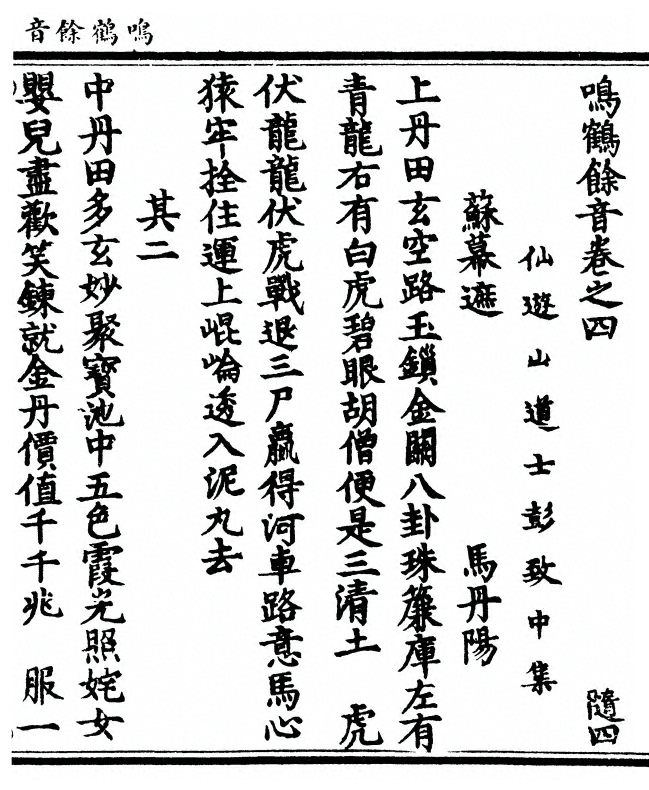 鳴鶴餘音
鳴鶴餘音卷之四 隨四
仙遊山道士彭致中集
蘇幕遮 馬丹陽
上丹田玄空路玉鎖金關八卦珠簾庫左有
青龍右有白虎碧眼胡僧便是三清土 虎
伏龍龍伏虎戰退三尸贏得河車路意馬心
猿牢拴住運上崐崘透入泥丸去
其二
中丹田多玄妙聚寶池中五色霞光照姹女
嬰兒盡歡笑鍊就金丹價值千千兆 服一